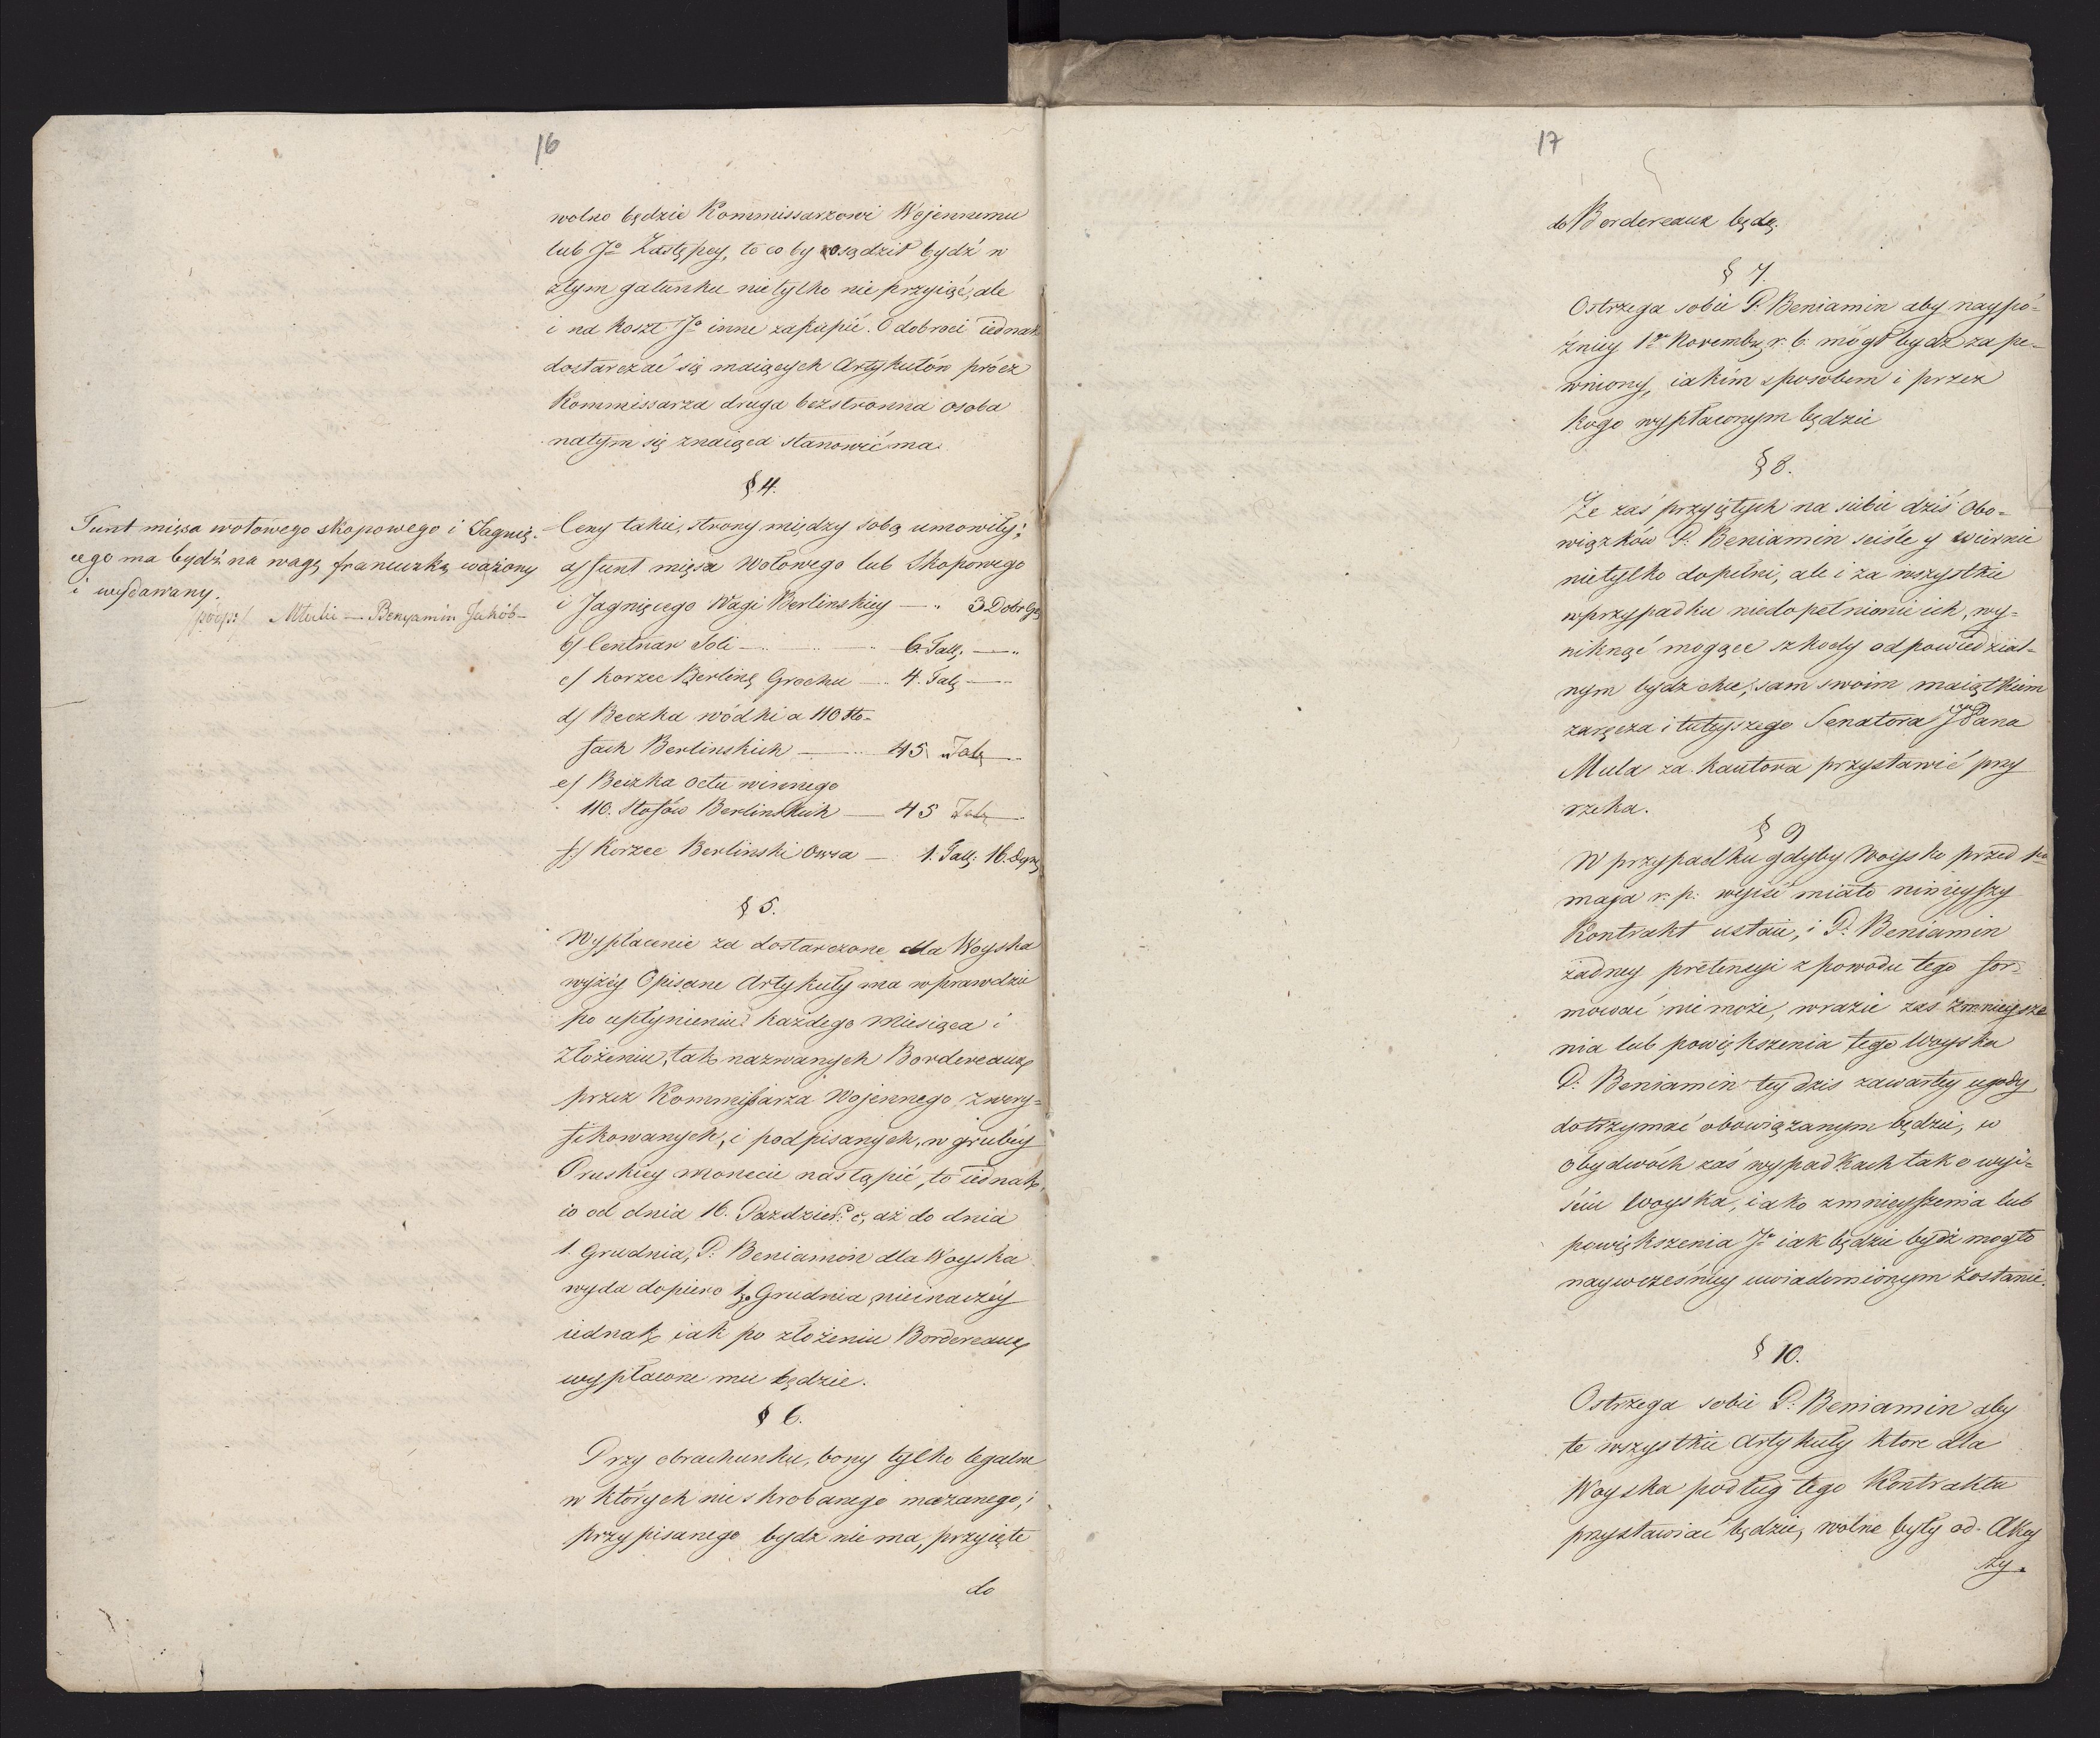 16
wolno będzie Kommissarzowi Wojennemu
lub Jo Zastępcy, to co by osądził bydź w
złym gatunku nietylko nie przyiąć, ale
i na koszt Jo inne zakupić. O dobroci iednak
dostarczać się maiących Artykułów prócz
Kommissarza druga bezstronna osoba
natym się znaiąca stanowić ma.
§ 4.
Funt mięsa wołowego skopowego i Jagnię-
cego ma bydź na wagę francuzką ważony
i wydawany.
/podp:/ — Benyamin Jakób —
Ceny takie, strony między sobą umowiły:
a/ funt mięsa Wołowego lub Skopowego
i Jagnięcego Wagi Berlinskiey — " 3 Dobr Gr
b/ Centnar Soli — 6. Tall: — "
c/ Korzec Berlins Grochu — 4. Tal —
d/ Beczka wódki a 110 Sto-
fach Berlinskich — 45 Tal —
e/ Beczka octu winnego
110. Stofów Berlinskich — 45 Tal —
f/ Korzec Berlinski Owsa — 1. Tall: 16. dgr
§ 5.
Wypłacenie za dostarczone dla Woyska
wyżéy Opisane Artykuły ma wprawdzie
po upłynieniu każdego Miesiąca i
złożeniu, tak nazwanych Bordereaux
przez Kommissarza Wojennego zwery-
fikowanych, i podpisanych, w grubéy
Pruskiey monecie nastąpić, to iednak,
co od dnia 16. Pazdzier: c, aż do dnia
1. Grudnia, P: Beniamin dla Woyska
wyda dopiero 1go Grudnia, nieinaczéy
iednak iak po złożeniu Bordereaux
wypłacone mu będzie.
§ 6.
Przy obrachunku, bony tylko legalne
w których nic skrobanego mazanego, i
przypisanego bydz nie ma, przyięte
do
17
do Bordereaux będą.
§ 7.
Ostrzega sobie P. Beniamin aby naypó-
źniey 1go Novembr. r. b. mógł bydz zape-
wniony, iakim sposobem i przez
kogo wypłaconym będzie
§ 8.
Że zaś przyiętych na siebie dziś Obo-
wiązków P: Beniamin sciśle y wiernie
nietylko dopełni, ale i za wszystkie
wprzypadku niedopełnienia ich, wy-
niknąć mogące szkody odpowiedzial-
nym bydz chce, sam swoim maiątkiem
zaręcza i tuteyszego Senatora JPana
Mula za Kautora przystawić przy
rzeka.
§ 9
W przypadku gdyby Woysko przed 1go
maja r. p. wyiść miało ninieyszy
Kontrakt ustaie, i P. Beniamin
żadney pretensyi z powodu tego for-
mować nie może, wrazie zaś zmnieysze
nia lub powiększenia tego Woyska
P: Beniamin tey dzis zawartey ugody
dotrzymać obowiązanym będzie, w
obydwóch zaś wypadkach tak o wyi-
ściu Woyska, iako zmnieyszenia lub
powiększenia Jo iak będzie bydź mogło
naywcześniey uwiadomionym zostanie.
§ 10.
Ostrzega sobie P. Beniamin aby
te wszystkie Artykuły które dla
Woyska podług tego Kontraktu
przystawiać będzie, wolne były od Akcy
zy.